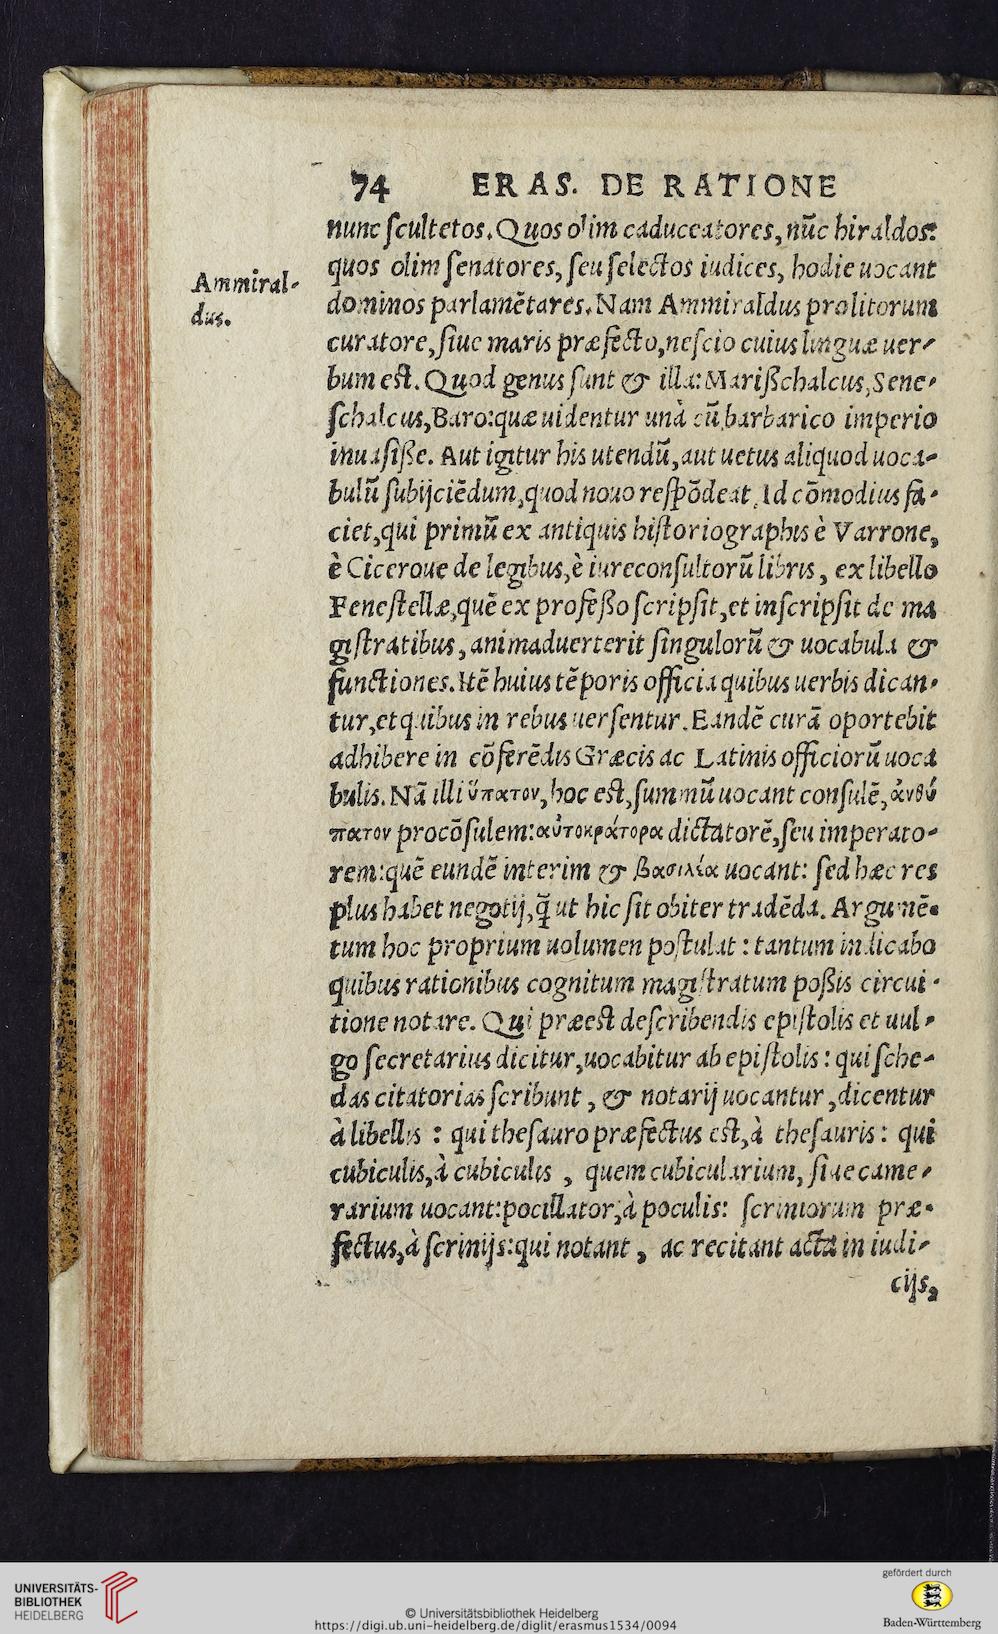 74 ERAS. DE RATIONE
nunc ſcultetos. Quos olim caduceatores, nūc hiraldos:
quos olim ſenatores, ſeu ſelectos iudices, hodie uocant
Ammiral-
dus.
dominos parlamētares. Nam Ammiraldus pro litorum
curatore, ſiue maris præfecto, neſcio cuius linguæ uer-
bum eſt. Quod genus ſunt & illa: Marißchalcus, Sene-
ſchalcus, Baro: quæ uidentur unà cū barbarico imperio
inuaſiße. Aut igitur his utendū, aut uetus aliquod uoca-
bulū ſubijciēdum, quod nouo reſpōdeat. Id cōmodius fa-
ciet, qui primū ex antiquis hiſtoriographis è Varrone,
è Ciceroue de legibus, è iureconſultorū libris, ex libello
Feneſtellæ, quē ex profeßo ſcripſit, et inſcripſit de ma
giſtratibus, animaduerterit ſingulorū & uocabula &
functiones. Itē huius tēporis officia quibus uerbis dican-
tur, et quibus in rebus uerſentur. Eandē curā oportebit
adhibere in cōferēdis Græcis ac Latinis officiorū uoca
bulis. Nā illi ὕπατον, hoc eſt, ſummū uocant conſulē, ἀνθύ
πατον procōſulem: αὐτοκράτορα dictatorē, ſeu imperato-
rem: quē eundē interim & βασιλέα uocant: ſed hæc res
plus habet negotij, q̄ ut hic ſit obiter tradēda. Argumē-
tum hoc proprium uolumen poſtulat: tantum indicabo
quibus rationibus cognitum magiſtratum poßis circui-
tione notare. Qui præeſt deſcribendis epiſtolis et uul-
go ſecretarius dicitur, uocabitur ab epiſtolis: qui ſche-
das citatorias ſcribunt, & notarij uocantur, dicentur
à libellis: qui theſauro præfectus eſt, à theſauris: qui
cubiculis, à cubiculis, quem cubicularium, ſiue came-
rarium uocant: pocillator, à poculis: ſcriniorum præ-
fectus, à ſcrinijs: qui notant, ac recitant acta in iudi-
cijs,
UNIVERSITÄTS-
BIBLIOTHEK
HEIDELBERG
© Universitätsbibliothek Heidelberg
https://digi.ub.uni-heidelberg.de/diglit/erasmus1534/0094
gefördert durch
Baden-Württemberg